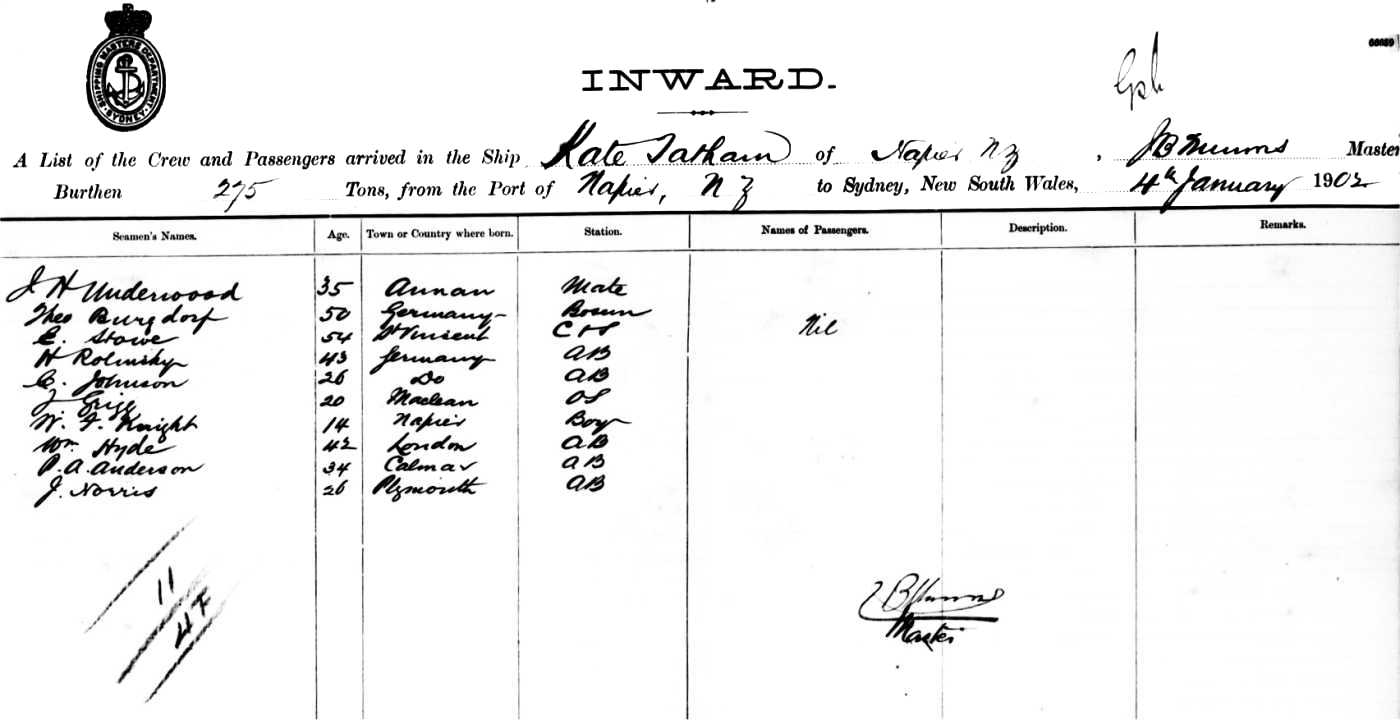 SHIPPING MASTERS DEPARTMENT · SYDNEY ·
00089
INWARD.
A List of the Crew and Passengers arrived in the Ship Kate Tatham of Napier NZ, J B Master
Burthen 275 Tons, from the Port of Napier, NZ to Sydney, New South Wales, 4th January 1902
Seamen's Names. Age. Town or Country where born. Station. Names of Passengers. Description. Remarks.
J H Underwood 35 Annan Mate
Theo Burgdorf 50 Germany Bosun
E. Stowe 54 St Vincent C & S Nil
H Rolinsky 43 Germany AB
C. Johnson 26 Do AB
J Grigg 20 Maclean OS
W. F. Knight 14 Napier Boy
Wm Hyde 42 London AB
P. A. Anderson 34 Calmar AB
J. Norris 26 Plymouth AB
11
4 F
Master